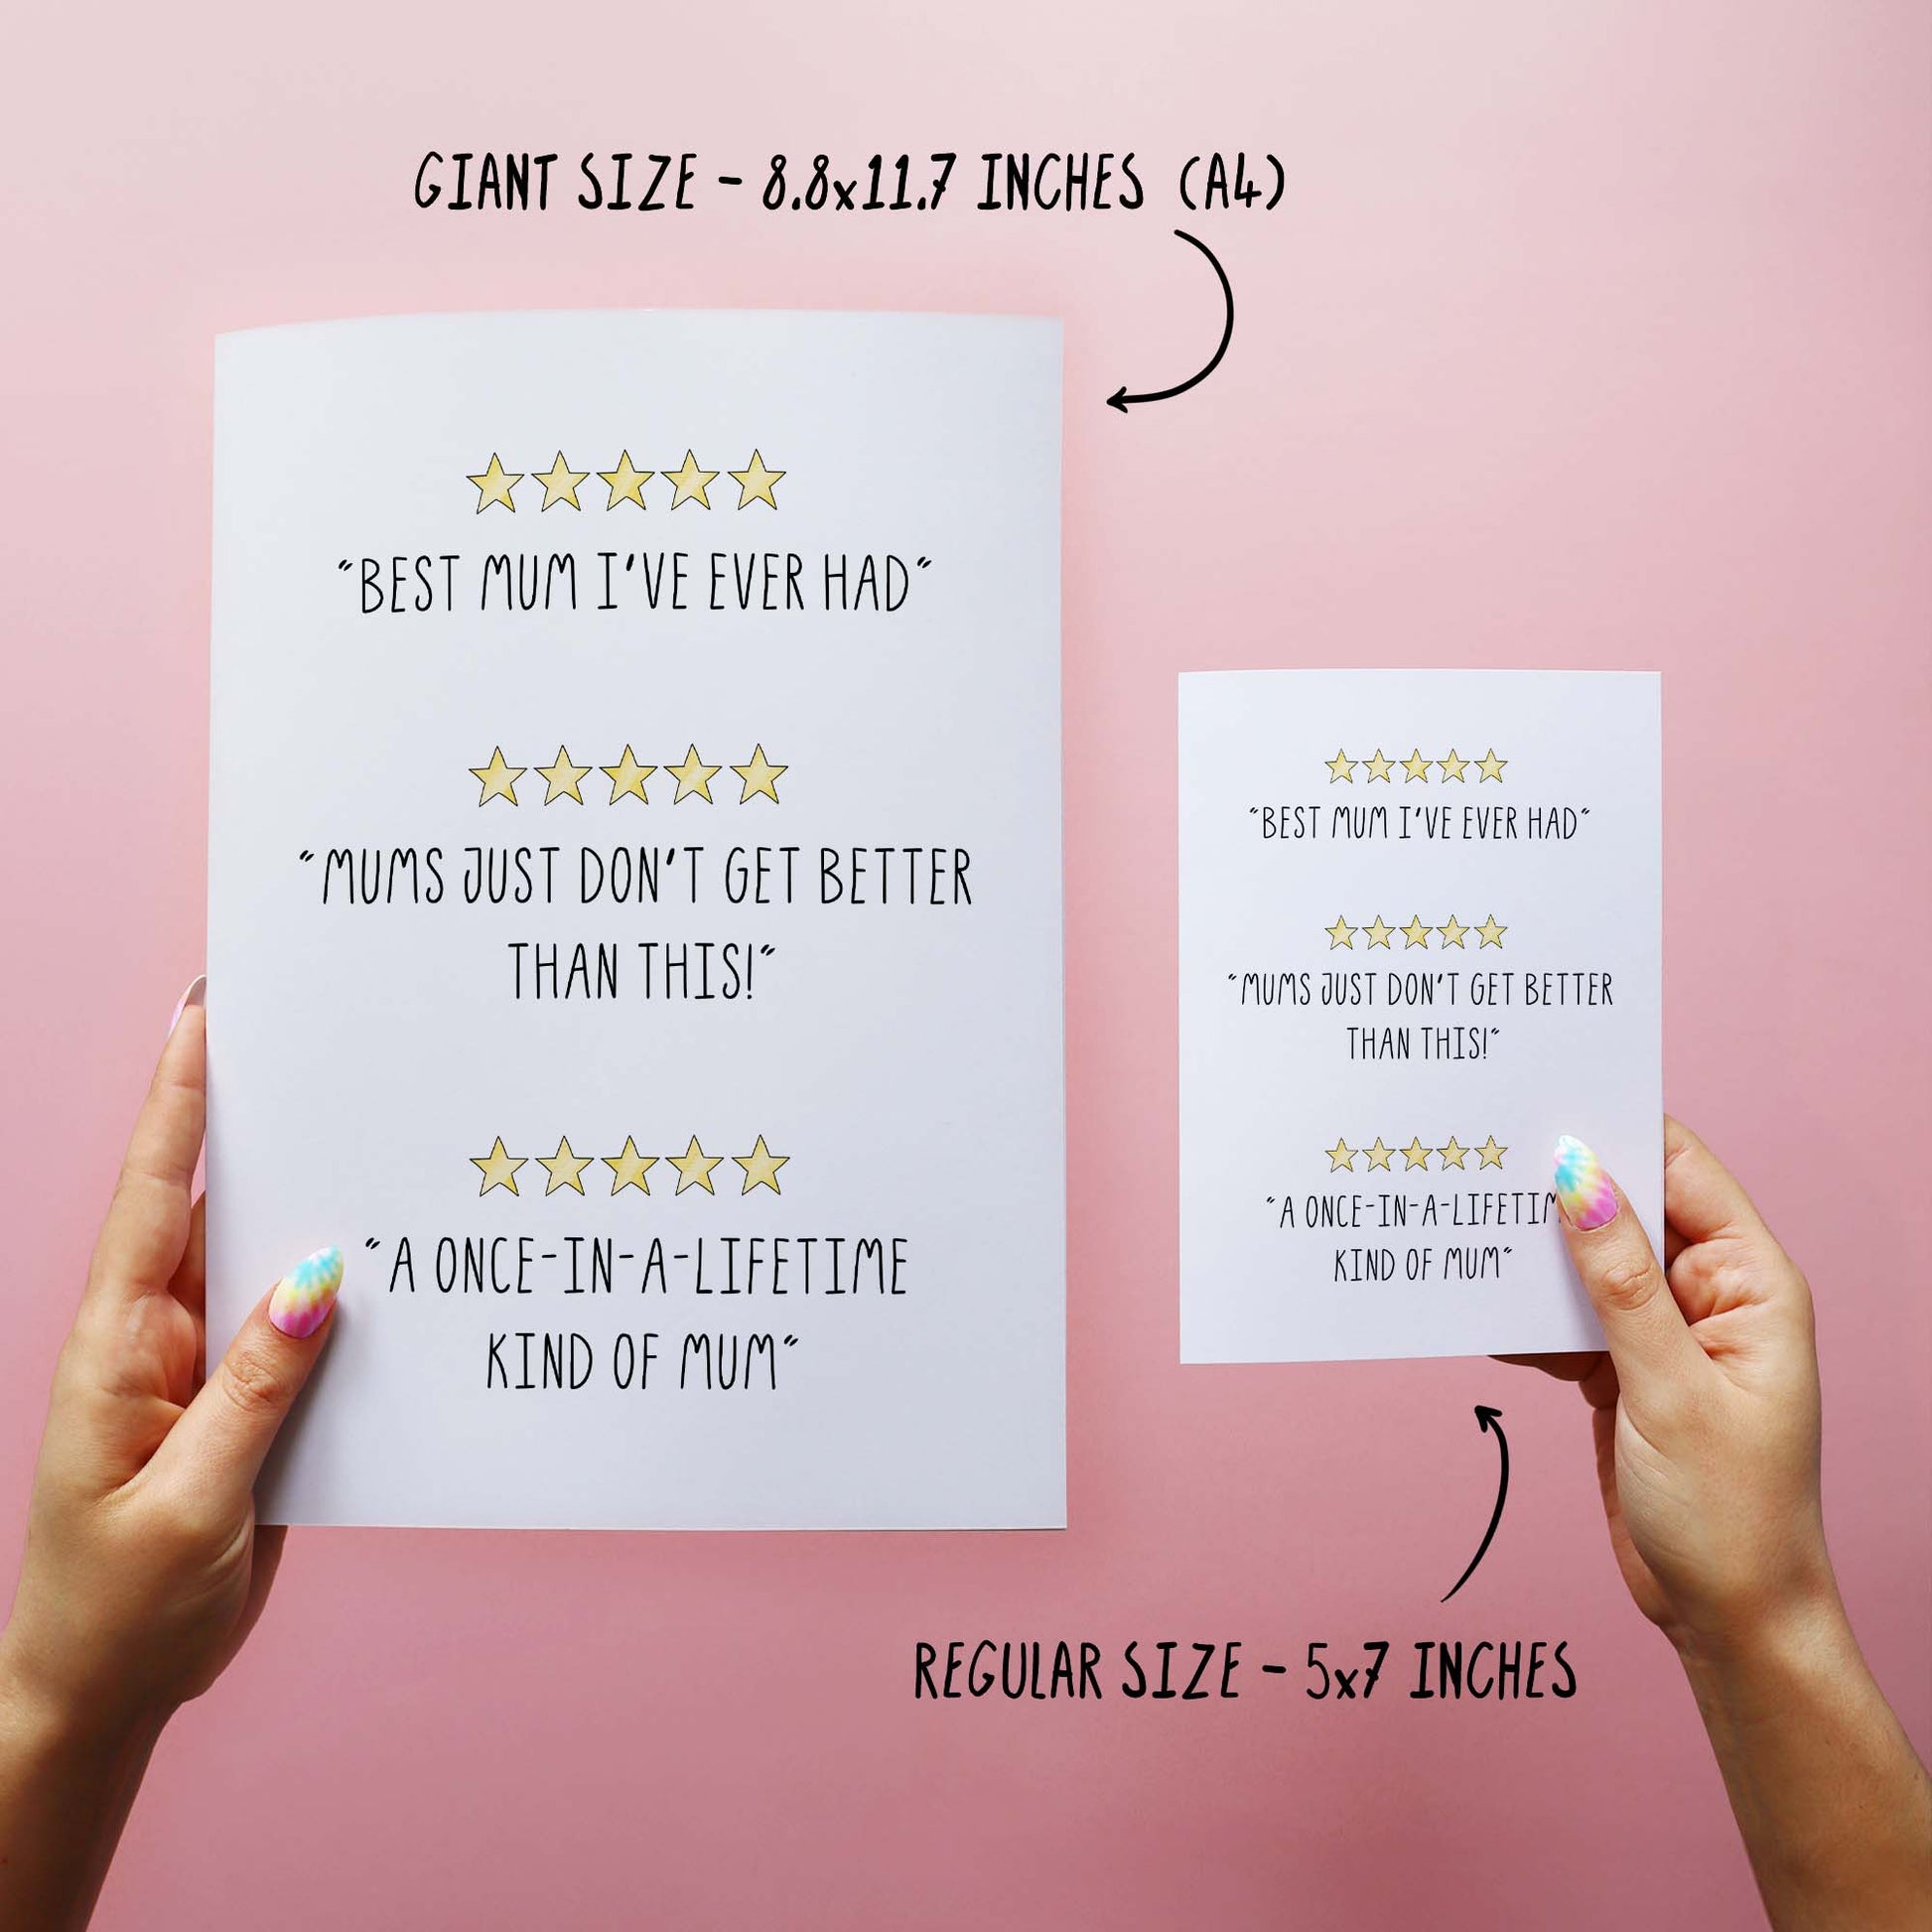 GIANT SIZE - 8.8x11.7 INCHES (A4)
"BEST MUM I'VE EVER HAD"
"MUMS JUST DON'T GET BETTER
THAN THIS!"
"A ONCE-IN-A-LIFETIME
KIND OF MUM"
"BEST MUM I'VE EVER HAD"
"MUMS JUST DON'T GET BETTER
THAN THIS!"
"A ONCE-IN-A-
KIND OF MUM"
REGULAR SIZE - 5x7 INCHES